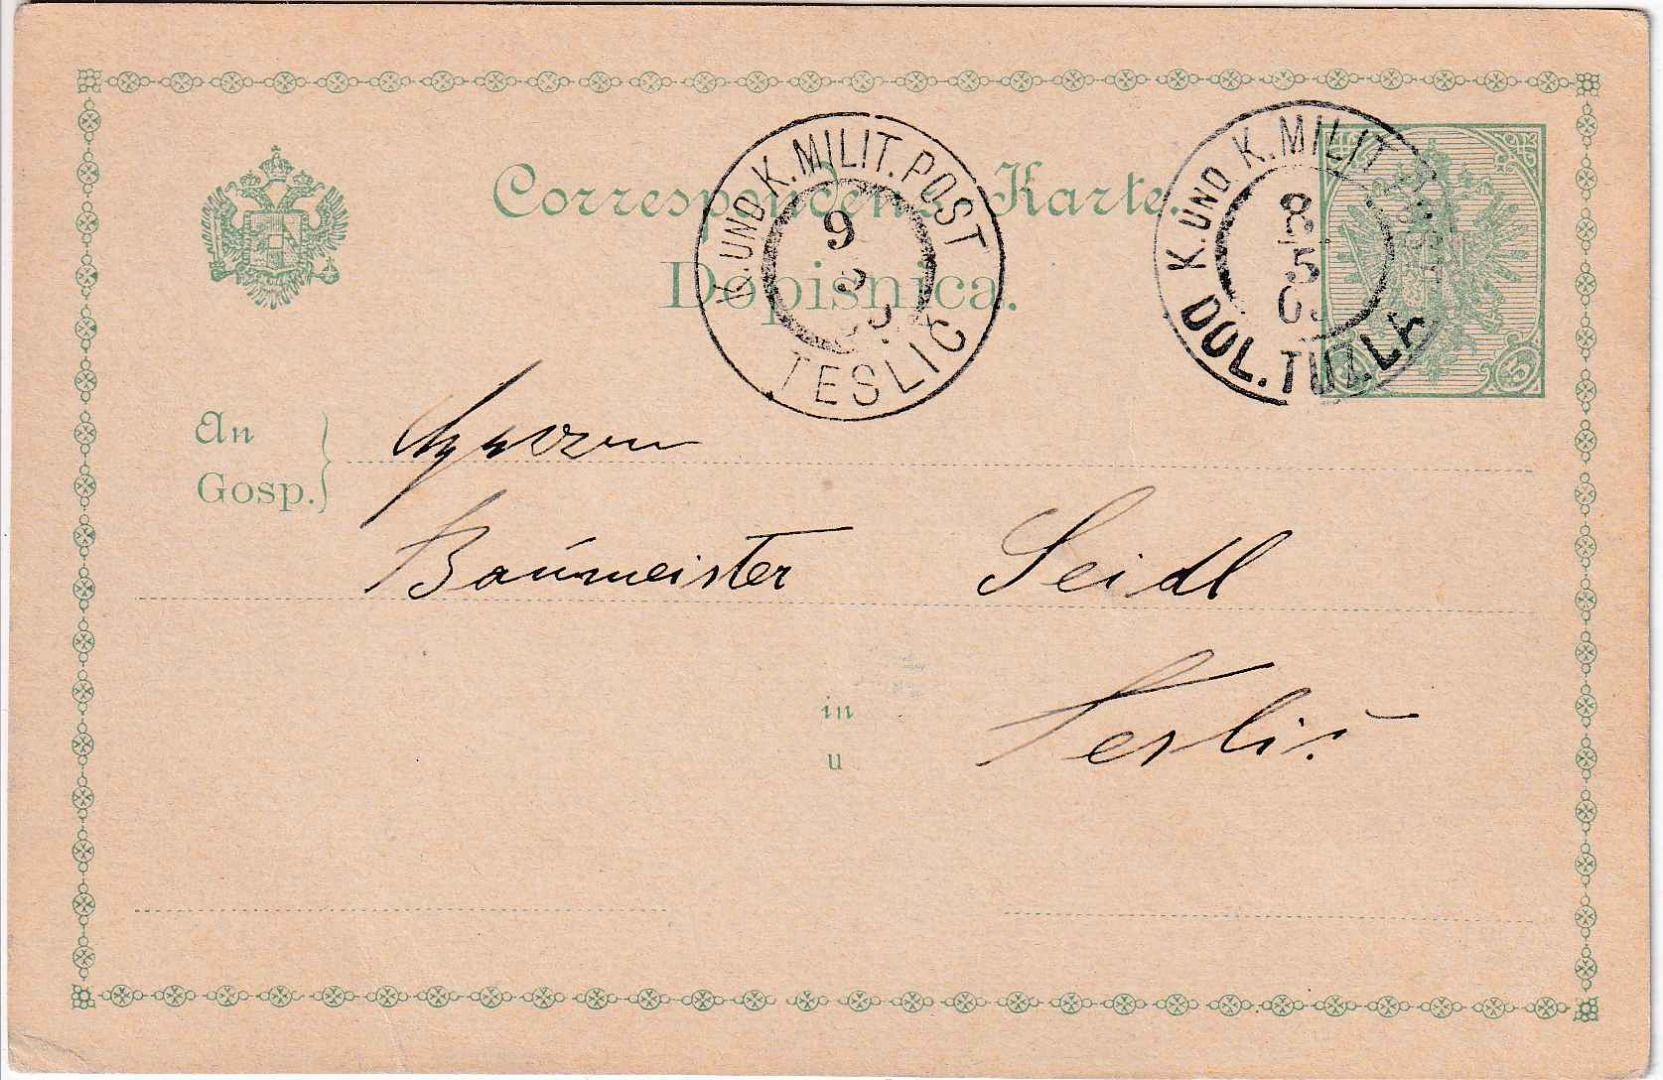 Correspondenz-Karte.
Dopisnica.
K. UND K. MILIT. POST
9
TESLIĆ
K. UND K. MILIT. POST
8
5
DOL. TUZLA
5
An
Gosp.
Baumeister Seidl
in
u
Teslić